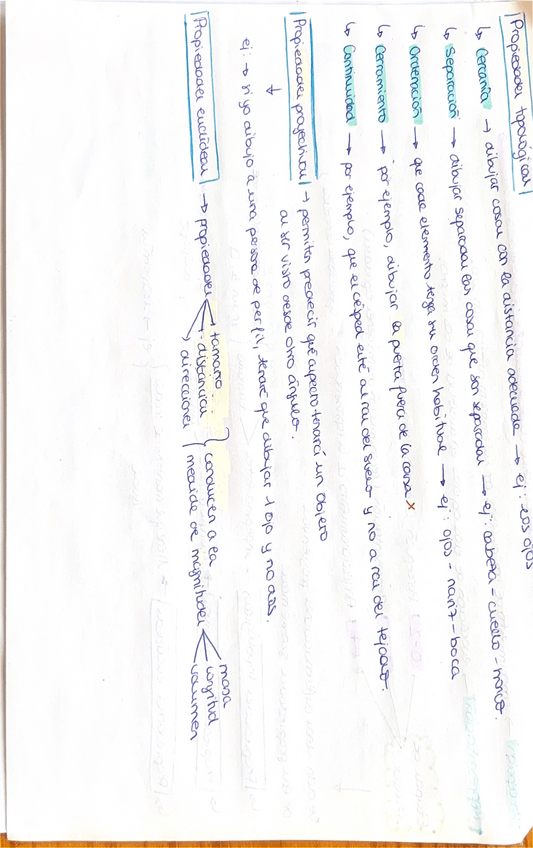 Propiedades topológicas
↳ Cercanía → dibujar cosas con la distancia adecuada → ej: los ojos
↳ Separación → dibujar separadas las cosas que son separadas → ej: cabeza - cuello - tronco.
↳ Ordenación → que cada elemento tenga su orden habitual → ej: ojos - nariz - boca
↳ Cerramiento → por ejemplo, dibujar la puerta fuera de la casa x
↳ Continuidad → por ejemplo, que el césped esté al ras del suelo y no a ras del tejado.
Propiedades proyectivas → permiten predecir qué aspecto tenará un objeto
al ser visto desde otro ángulo.
↓
ej: → si yo dibujo a una persona de perfil, tendré que dibujar 1 ojo y no dos.
Propiedades euclídeas → propiedades
→ tamaño
→ distancia
→ direcciones
} conducen a la
medida de magnitudes
masa
longitud
volumen